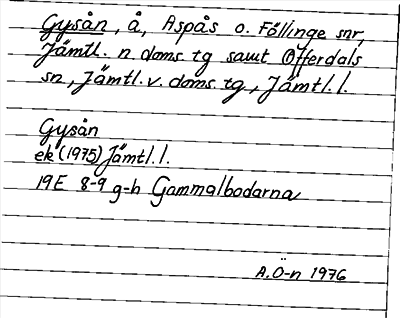 Gysån, å, Aspås o. Föllinge snr,
Jämtl. n. doms. tg samt Offerdals
sn, Jämtl. v. doms. tg, Jämtl. l.
Gysån
ek (1975) Jämtl. l.
19E 8-9 g-h Gammalbodarna
A. Ö-n 1976